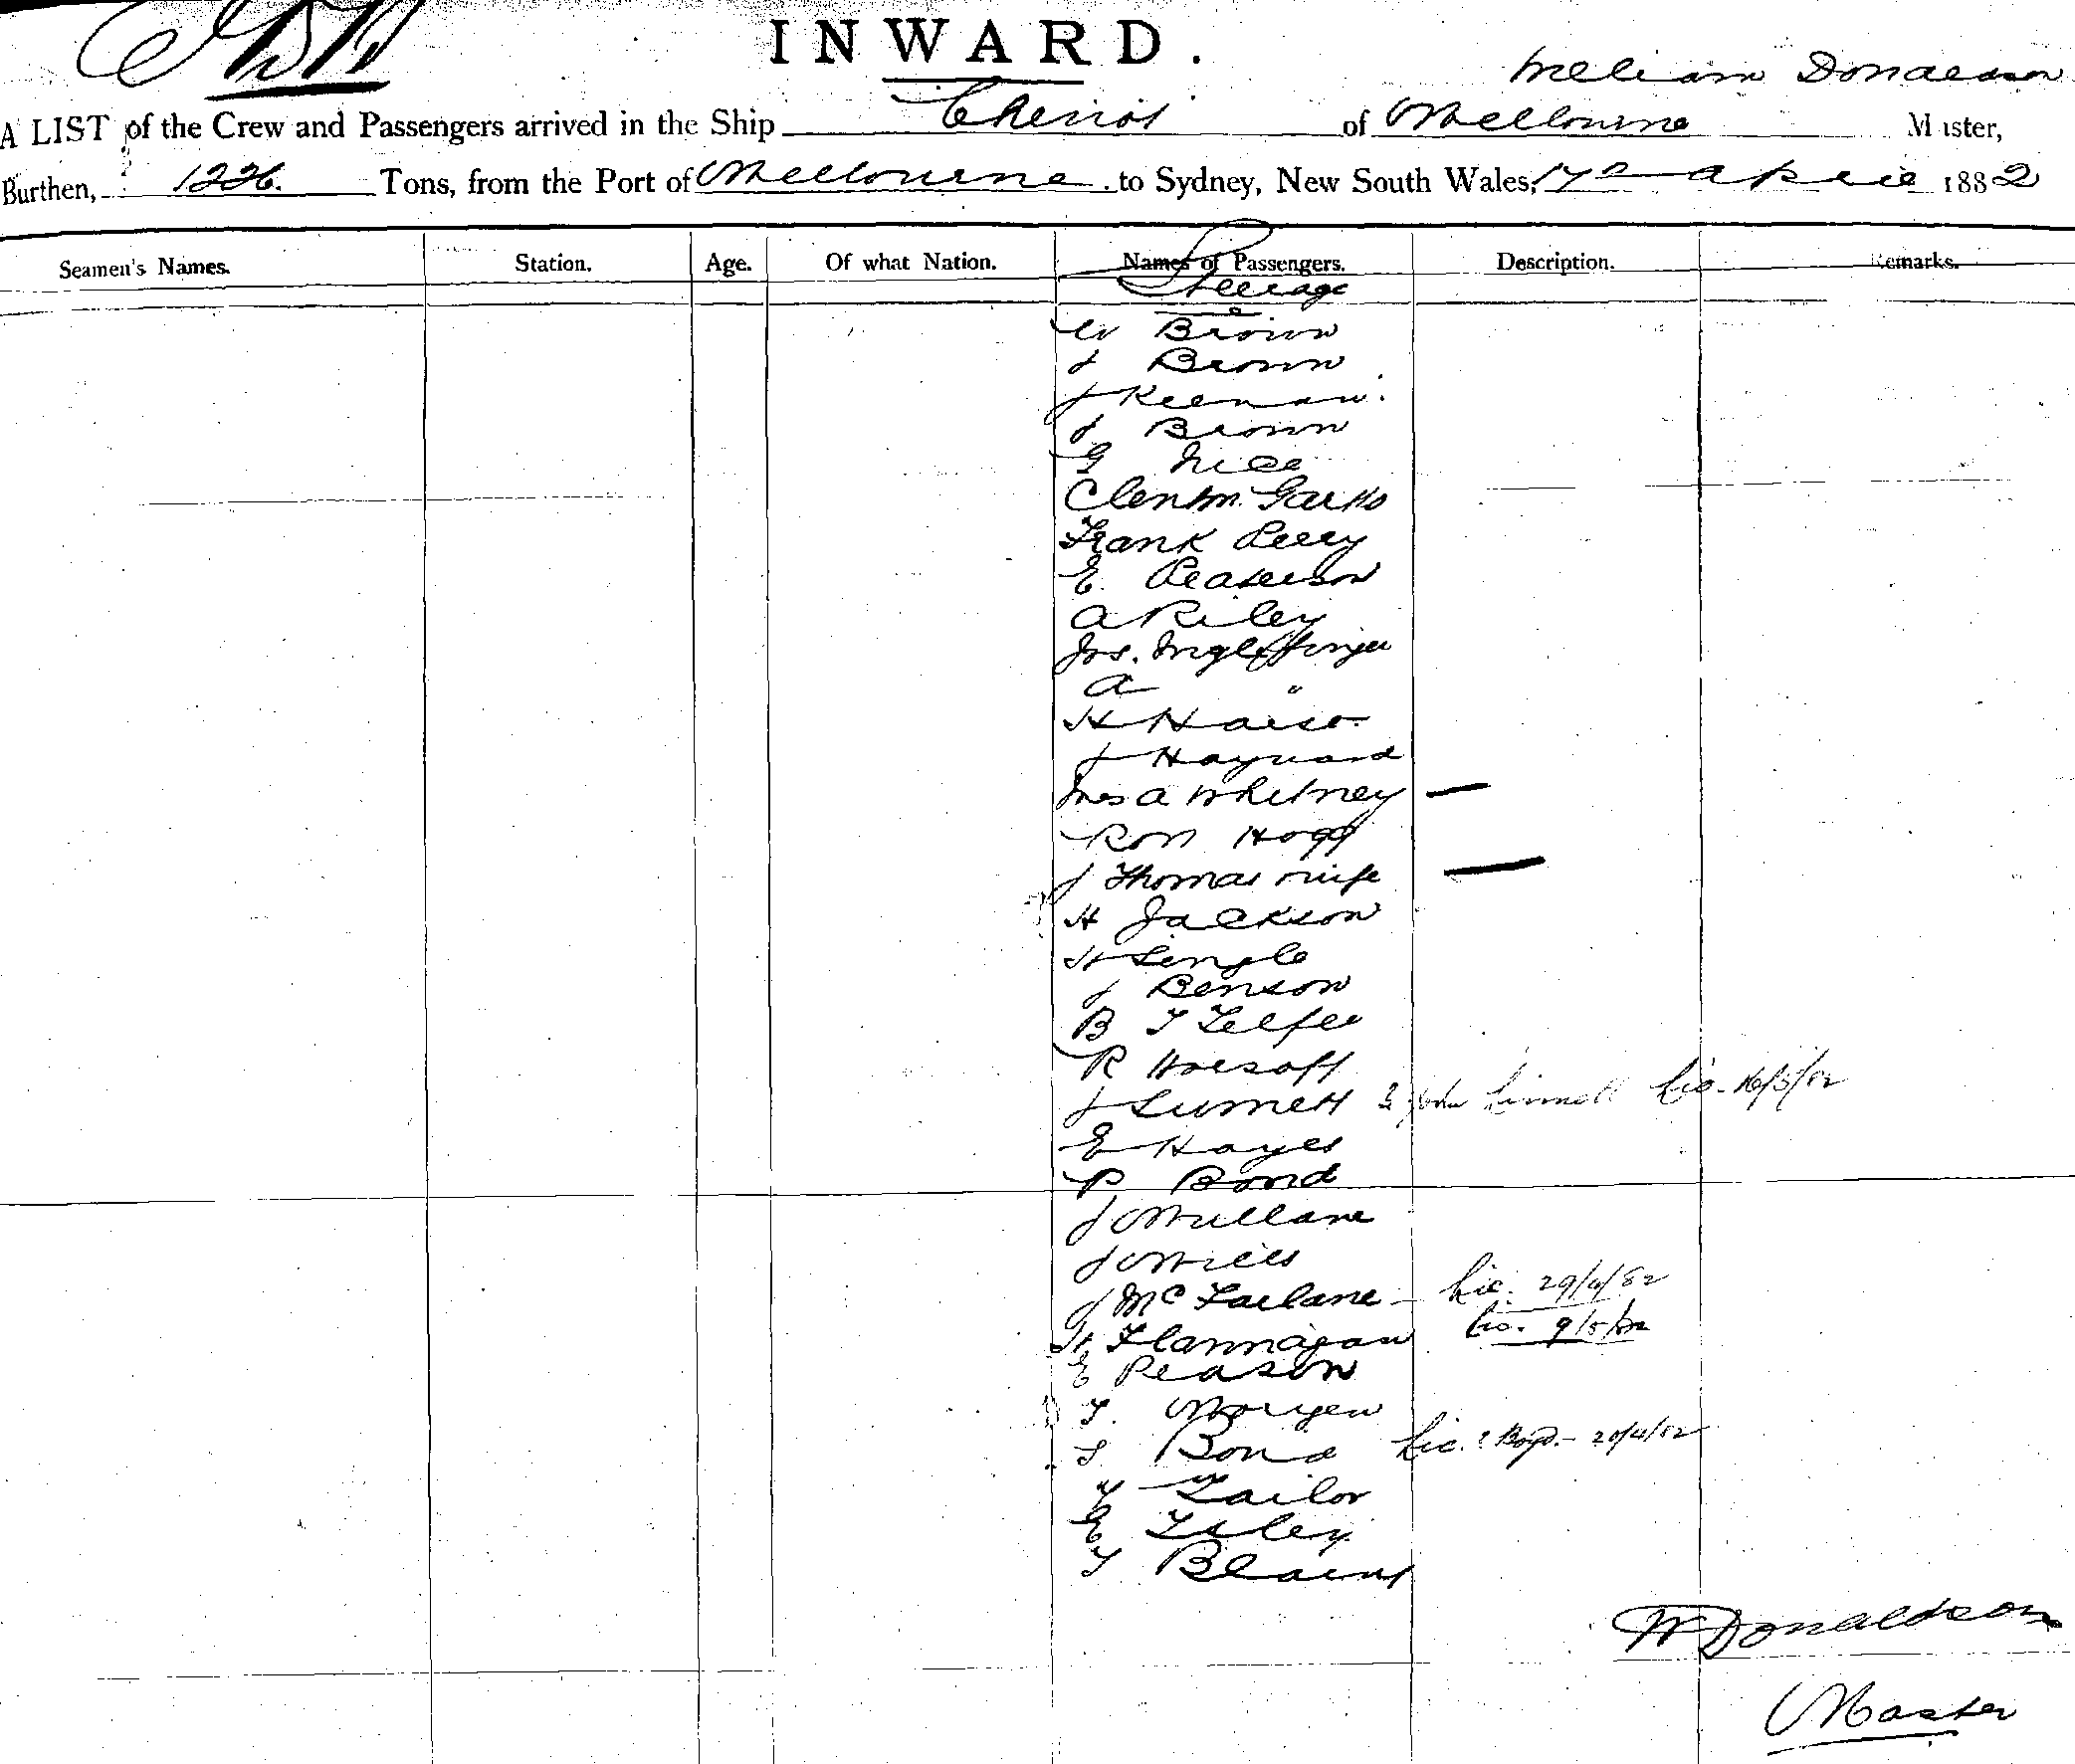 INWARD.
William Donaldson
A LIST of the Crew and Passengers arrived in the Ship Cheviot of Melbourne Master,
Burthen, 1226. Tons, from the Port of Melbourne to Sydney, New South Wales, 17 April 1882
Seamen's Names. Station. Age. Of what Nation. Names of Passengers. Description. Remarks.
Steerage
W Brown
J Brown
J Keenan
J Brown
G
Frank Perry
E.
A Riley
Jos.
A "
H
J Hayward
Mrs A Whitney —
Hogg
J Thomas wife —
H Jackson
J Benson
B T Telfer
R
J John Linnell Lic. 16/5/82
E Hayes
P Bond
J Mullane
J Mills
J McFarlane - Lic. 29/4/82
Flannagan Lic. 9/5/82
E Peason
T. Morgan
S Bond Lic. ? Boyd. - 20/4/82
T Tailor
E
T
W Donaldson
Master